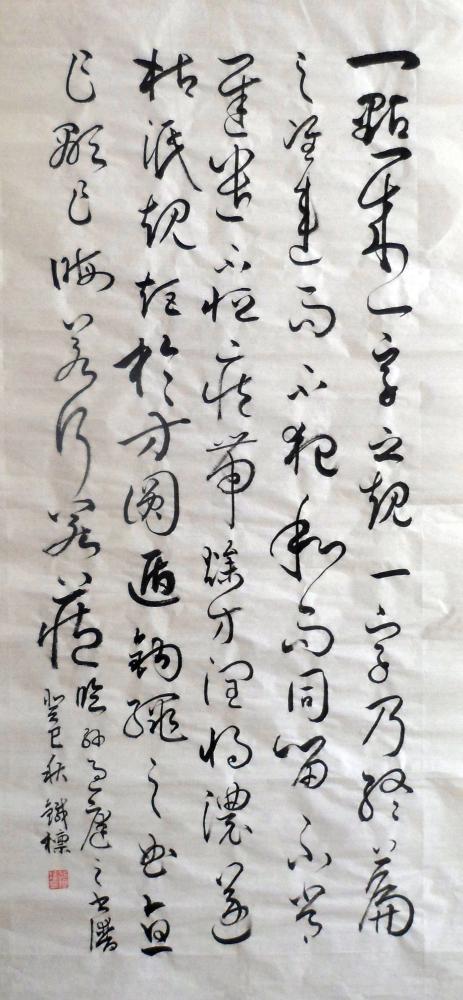 一點成一字之規一字乃終篇
之准違而不犯和而同留不常
遲遣不恆疾帶燥方潤將濃遂
枯泯規矩於方圓遁鉤繩之曲直
乍顯乍晦若行若藏臨孫過庭之書譜
癸巳秋鐵